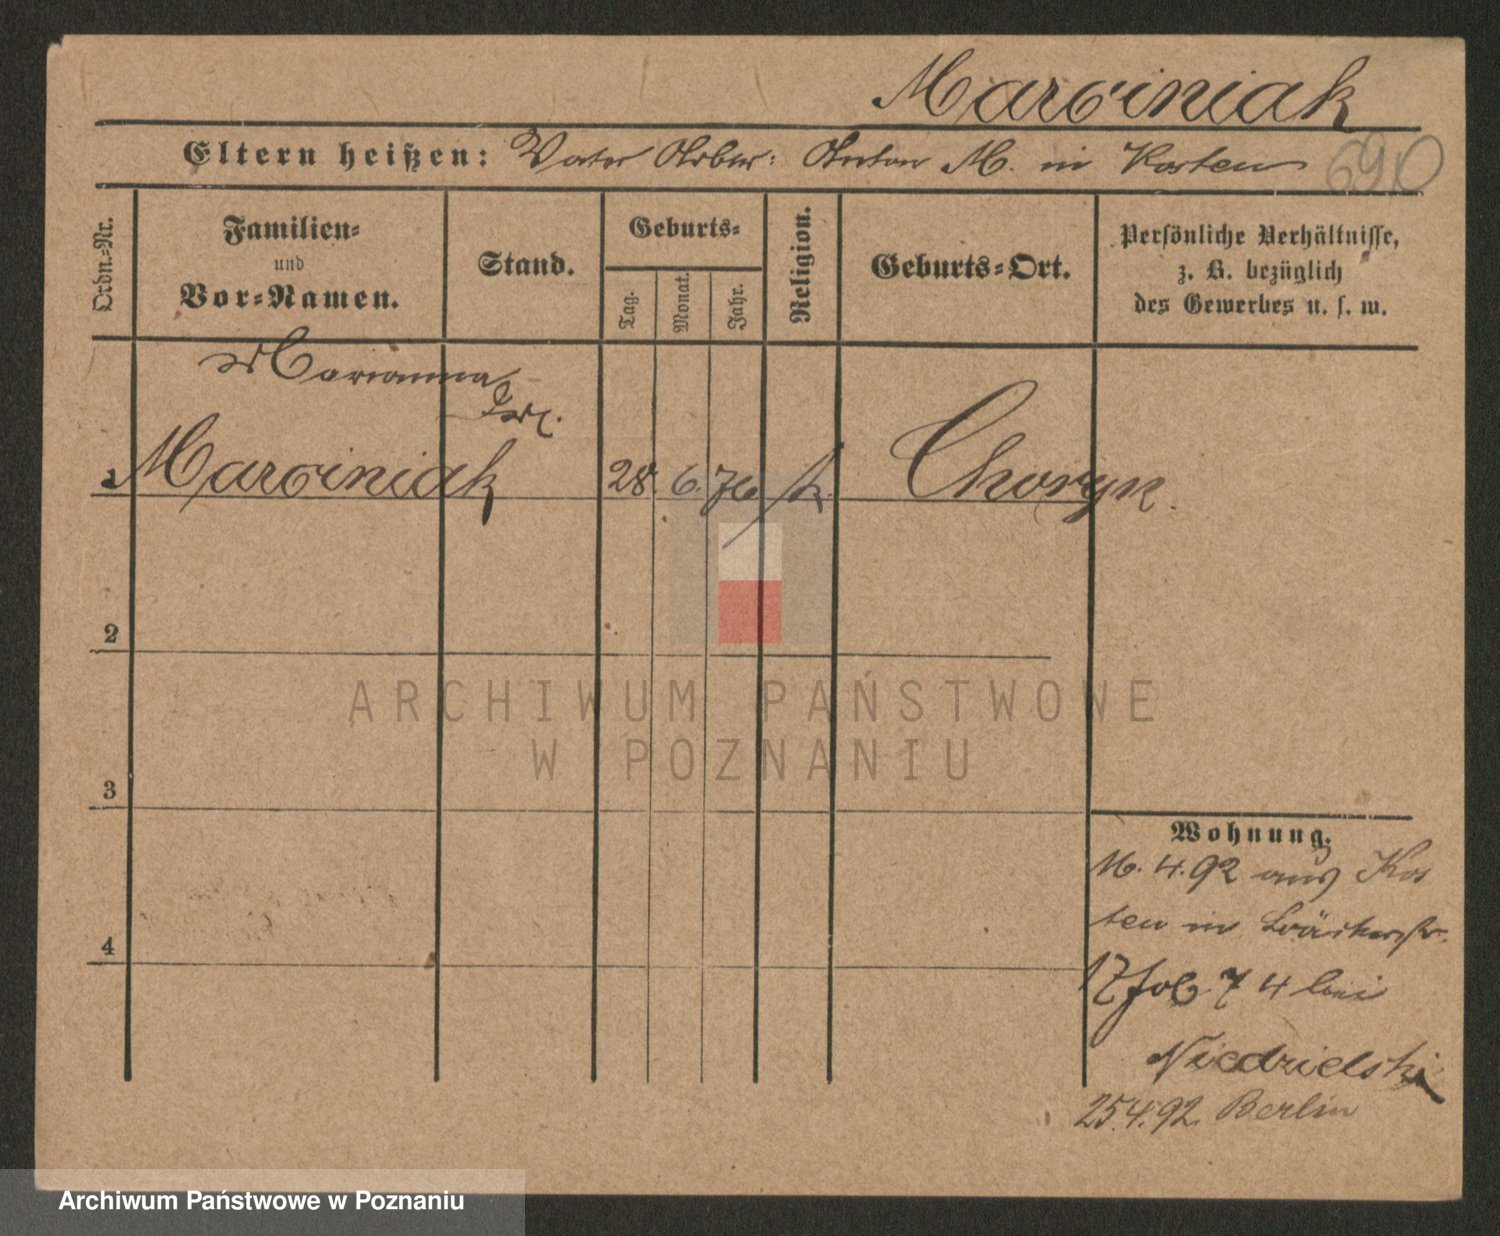 Marciniak
Eltern heißen: Vater Arbtr: Anton M. in Kosten
690
Ordn.-Nr.
Familien-
und
Vor-Namen.
Stand.
Geburts-
Tag.
Monat.
Jahr.
Religion.
Geburts-Ort.
Persönliche Verhältnisse,
z. B. bezüglich
des Gewerbes u. s. w.
Marianna
1 Marciniak 28. 6. 76 k. Choryn.
2
3
4
ARCHIWUM PAŃSTWOWE
W POZNANIU
Wohnung.
4.92 aus Kos
ten in
17 4 bei
Niedzielski
25.4.92. Berlin
Archiwum Państwowe w Poznaniu